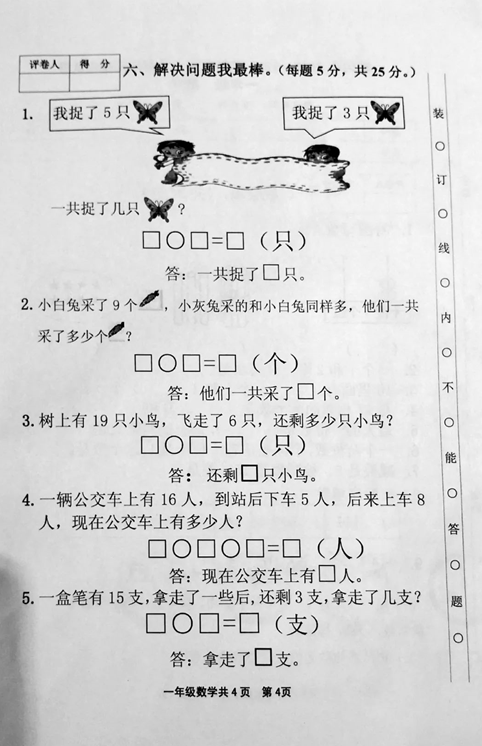 评卷人 得分
六、解决问题我最棒。（每题5分，共25分。）
1.
我捉了5只
我捉了3只
一共捉了几只 ？
□○□=□（只）
答：一共捉了□只。
2. 小白兔采了9个 ，小灰兔采的和小白兔同样多，他们一共
采了多少个 ？
□○□=□（个）
答：他们一共采了□个。
3. 树上有19只小鸟，飞走了6只，还剩多少只小鸟？
□○□=□（只）
答： 还剩□只小鸟。
4. 一辆公交车上有16人，到站后下车5人，后来上车8
人，现在公交车上有多少人？
□○□○□=□（人）
答：现在公交车上有□人。
5. 一盒笔有15支,拿走了一些后,还剩3支,拿走了几支？
□○□=□（支）
答：拿走了□支。
一年级数学共4页 第4页
装○订○线○内○不○能○答○题○